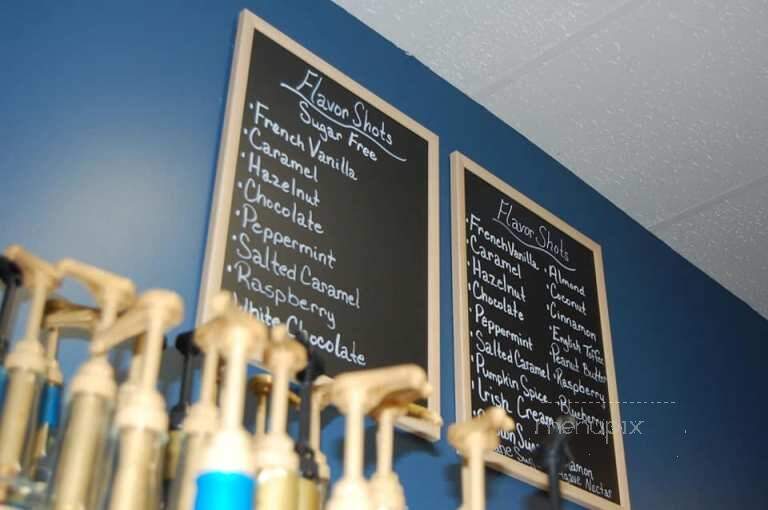 Flavor Shots
Sugar Free
• French Vanilla
• Caramel
• Hazelnut
• Chocolate
• Peppermint
• Salted Caramel
• Raspberry
White Chocolate
Flavor Shots
• French Vanilla
• Caramel
• Hazelnut
• Chocolate
• Peppermint
• Salted Caramel
• Pumpkin Spice
• Irish Cream
• Almond
• Coconut
• Cinnamon
• English Toffee
• Peanut Butter
• Raspberry
• Blueberry
menupix